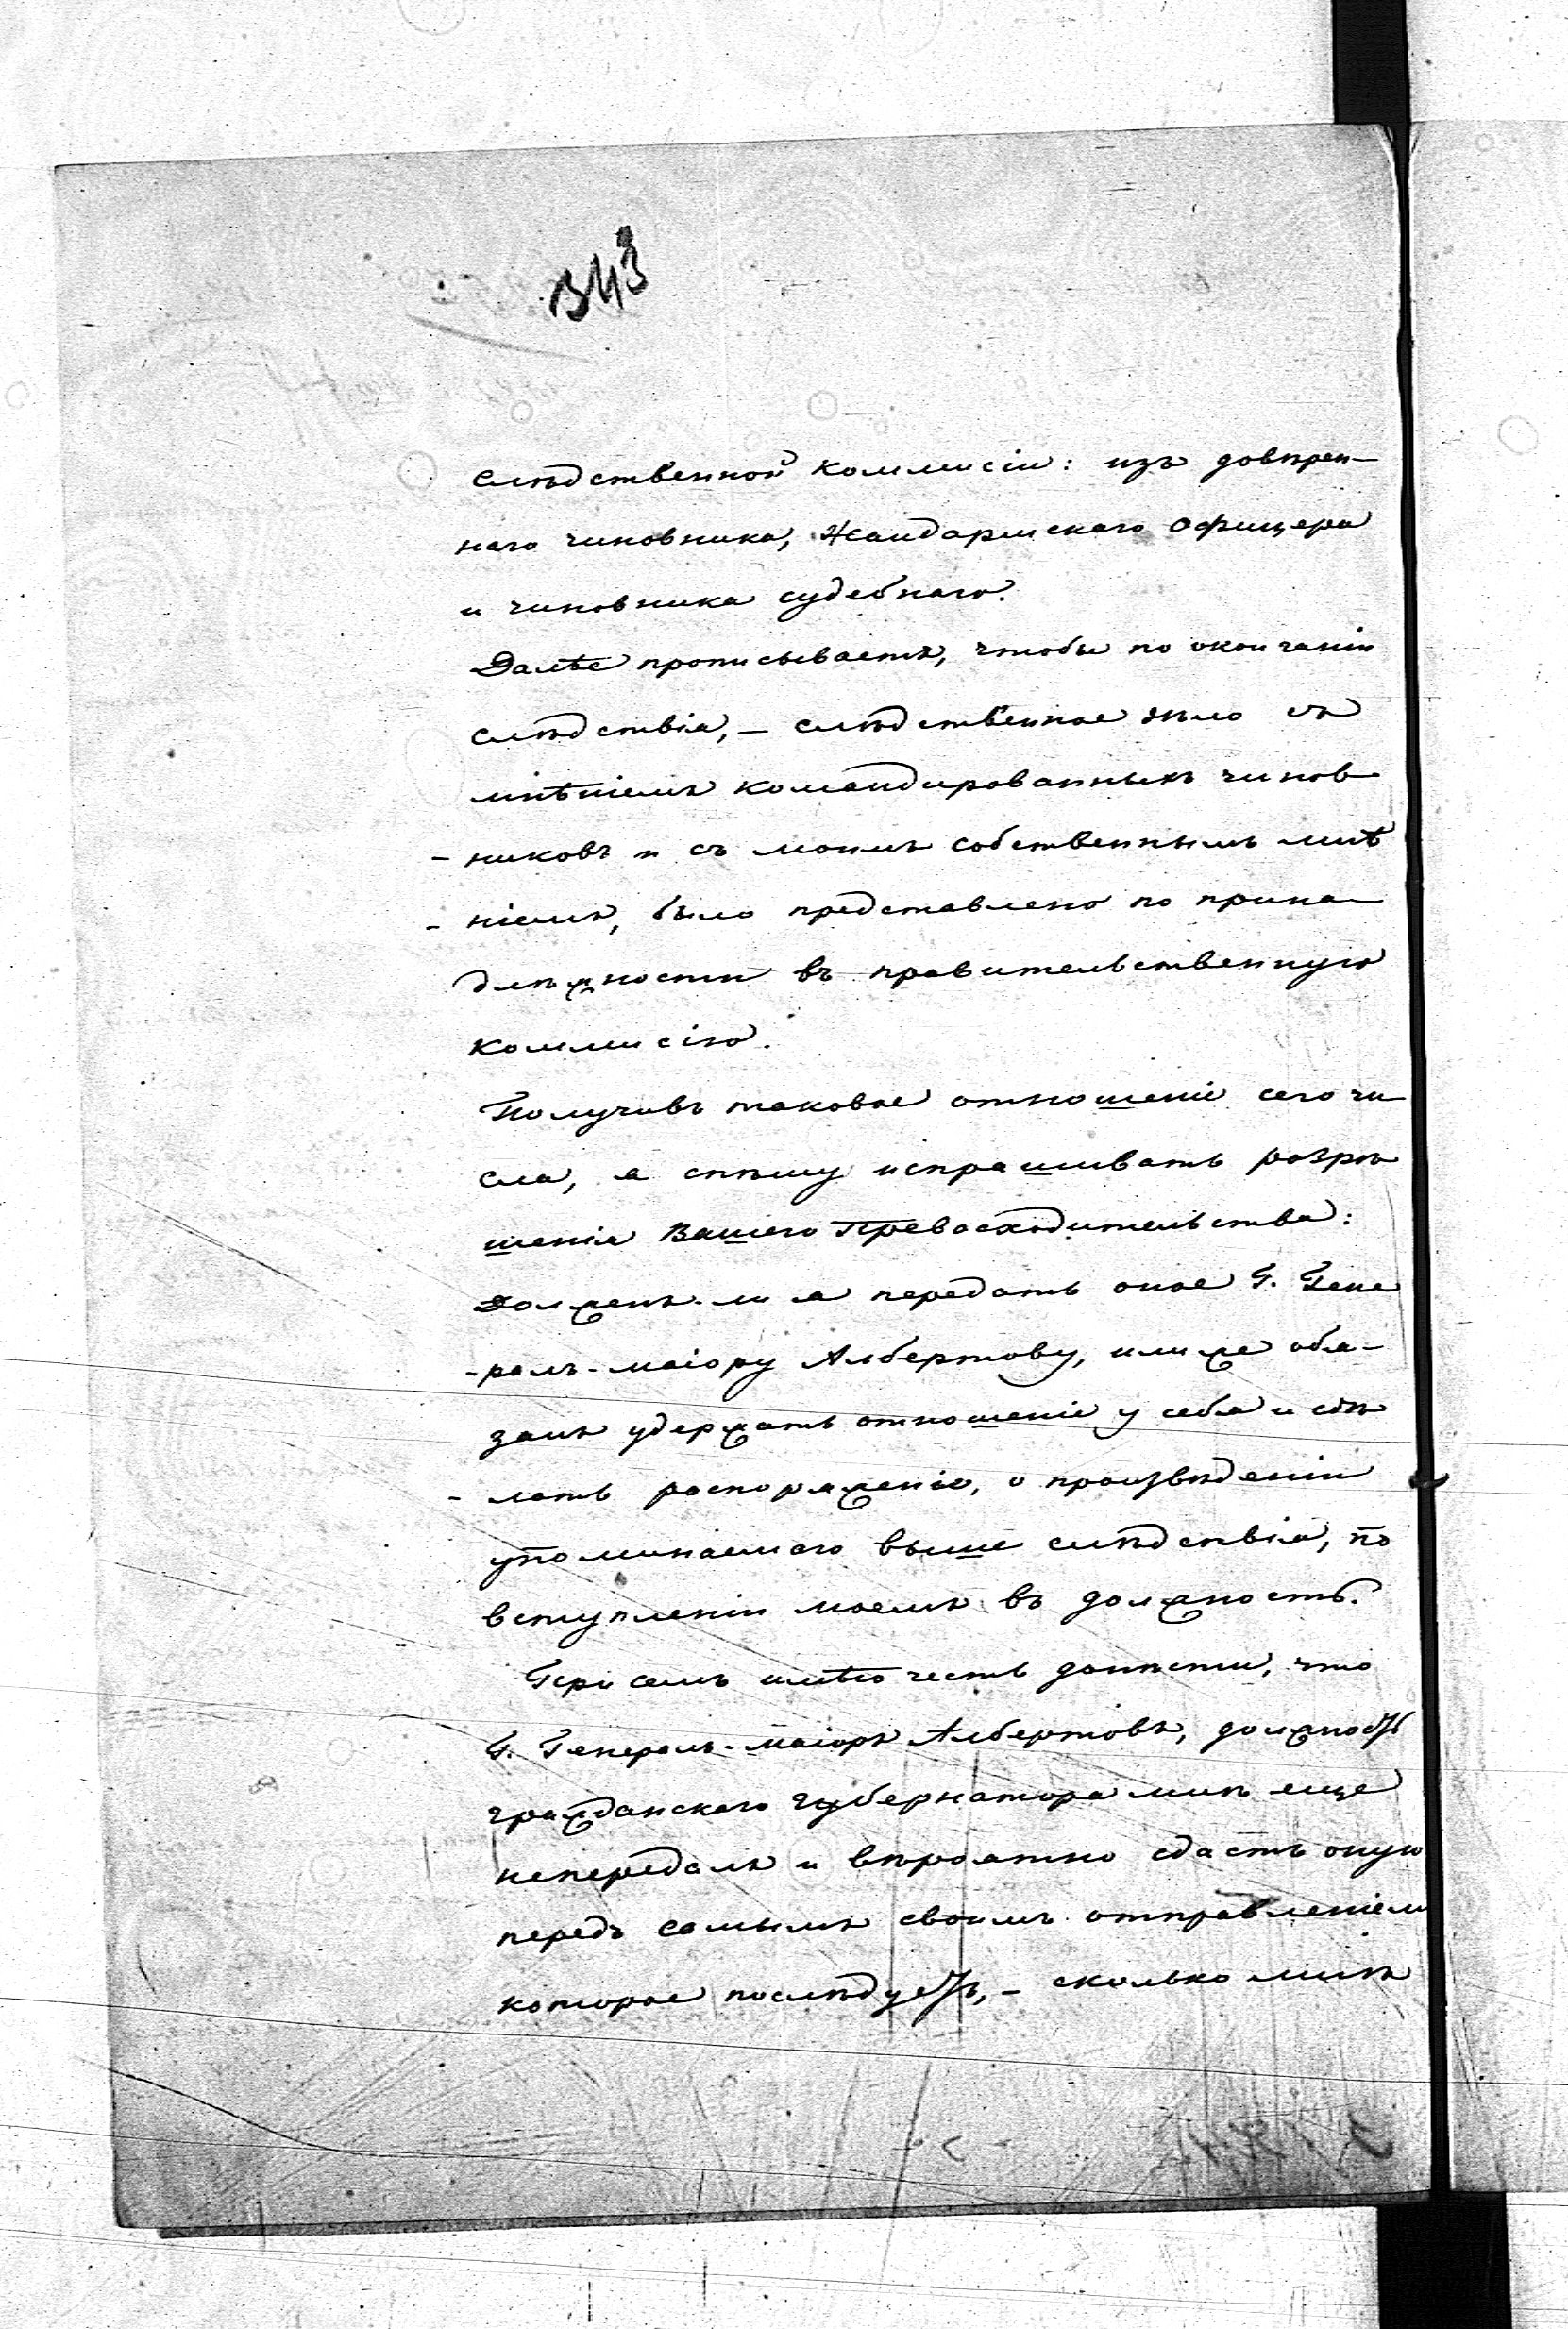 343
слѣдственной коммисіи: изъ довѣрен-
наго чиновника, Жандармскаго Офицера
и чиновника судебнаго.
Далѣе прописываетъ, чтобы по окончаніи
слѣдствія, - слѣдственное дѣло съ
мнѣніемъ командированныхъ чинов
- никовъ и съ моимъ собственнымъ мнѣ
- ніемъ, было представлено по прина
длѣжности въ правительственную
коммисію.
Получивъ таковое отношеніе сего чи
сла, я спѣшу испрашивать разрѣ
шенія Вашего Превосходительства:
Долженъ-ли я передать оное Г. Гене
- ралъ-маіору Албертову, или же обя-
занъ удержать отношеніе у себя и сдѣ
- лать распоряженіе, о произвѣденіи
упоминаемаго выше слѣдствія, по
вступленіи моемъ въ должность.
При семъ имѣю честь донѣсти, что
Г. Генералъ-маіоръ Албертовъ, должность
гражданскаго губернатора мнѣ еще
непередалъ и вѣроятно сдастъ оную
передъ самымъ своимъ отправленіемъ
которое послѣдуетъ, - сколько мнѣ